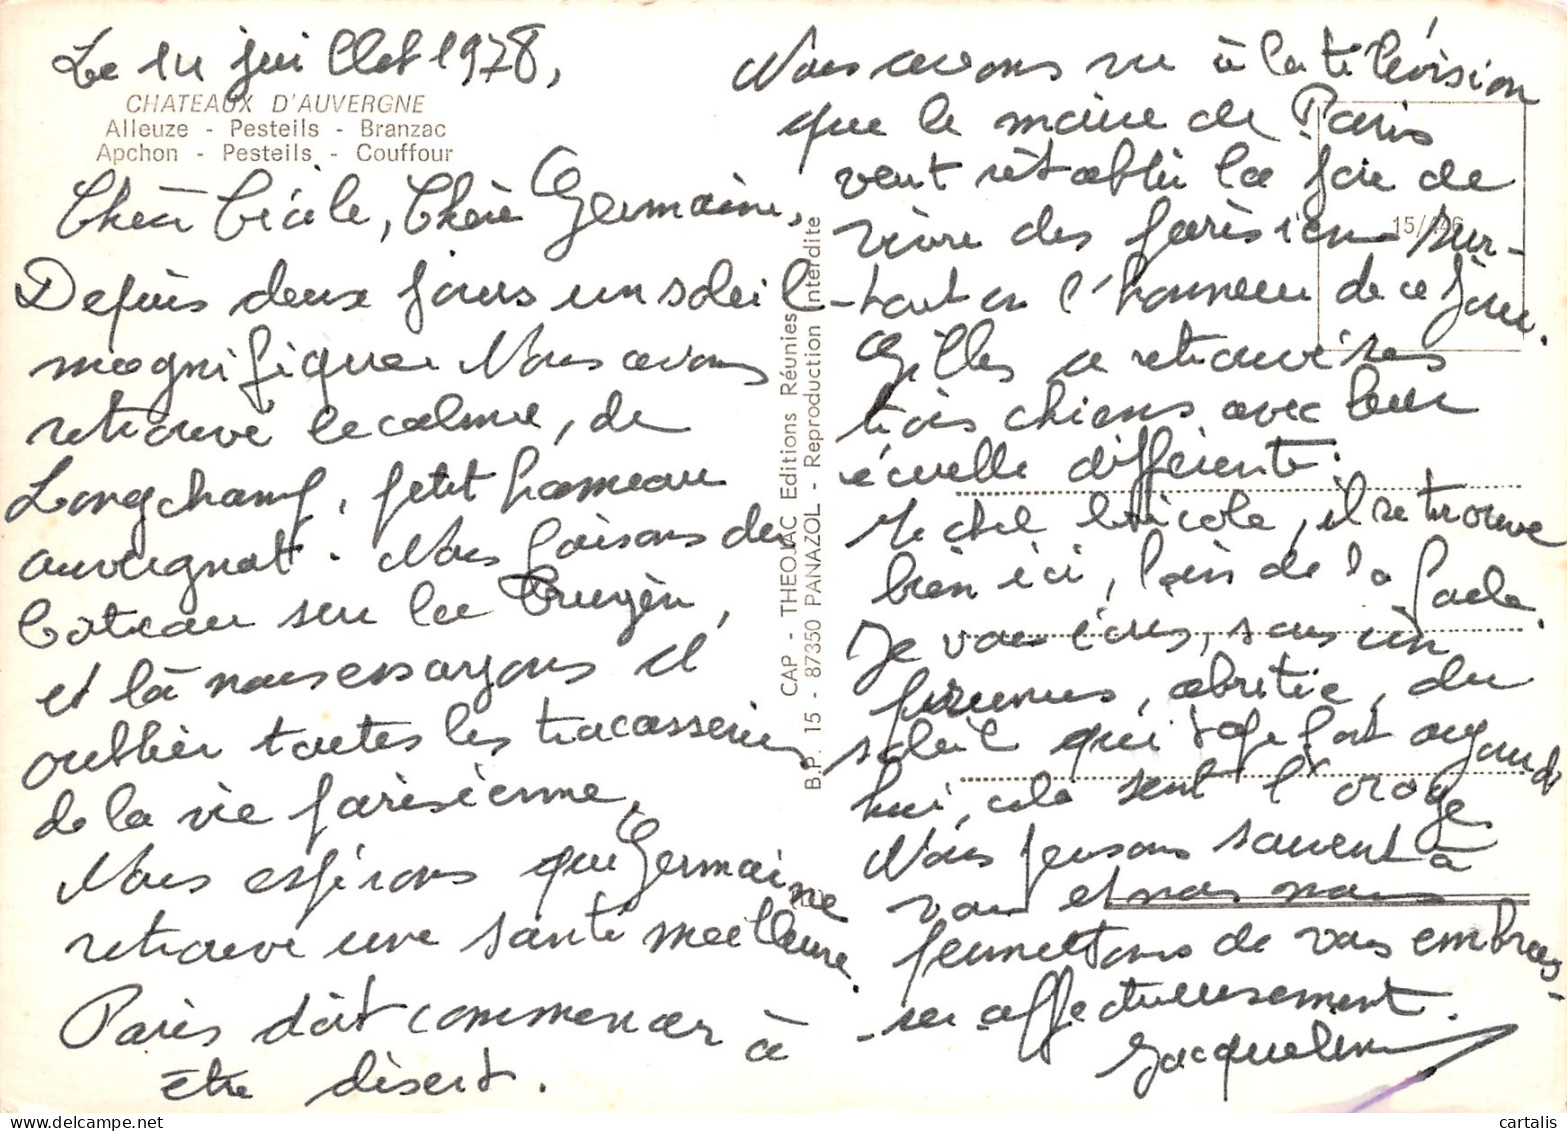 Le 14 juillet 1978,
CHATEAUX D'AUVERGNE
Alleuze - Pesteils - Branzac
Apchon - Pesteils - Couffour
Chère Cécile, Chère Germaine,
Depuis deux jours un soleil
magnifique. Nous avons
retrouvé le calme, de
Longchamp, petit hameau
auvergnat. Nous faisons du
bateau sur la Truyère,
et là nous essayons d'
oublier toutes les tracasseries
de la vie parisienne.
Nous espérons que Germaine
retrouve une santé meilleure.
Paris doit commencer à
être désert.
CAP - THEOJAC Editions Réunies
B.P. 15 - 87350 PANAZOL - Reproduction Interdite
Nous avons vu à la télévision
que le maire de Paris
veut rétablir la joie de
vivre des parisiens sur-
15/446
-tout en l'honneur de ce jour.
Gilles a retrouvé ses
trois chiens avec leur
écuelle différente.
Michel bricole, il se trouve
bien ici, loin de la
Je vous écris, sous un
prunus, abritée, du
soleil qui tape fort aujourd'
hui, cela sent l'orage
Nous pensons souvent à
vous et nous nous
permettons de vous embras-
-ser affectueusement.
Jacqueline
cartalis